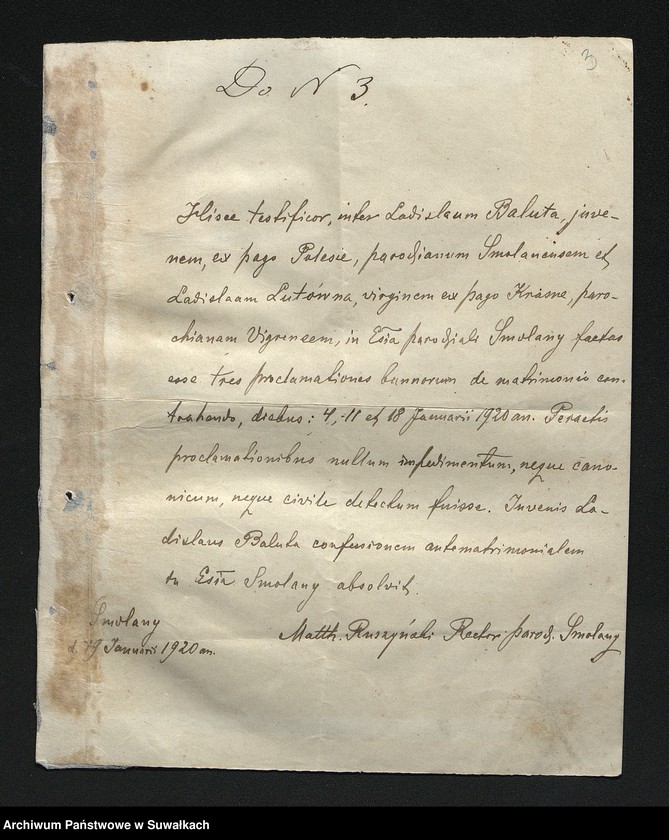 3
Do N 3.
Hisce testificor, inter Ladislaum Baluta, juve-
nem, ex pago Polesie, parochianum Smolanensem et
Ladislaam Lutówna, virginem ex pago Krasne, paro-
chianam Vigrensem, in Esia parochiali Smolany factas
esse tres proclamationes bannorum de matrimonio con-
trahendo, diebus: 4, 11 et 18 Januarii 1920 an. Peractis
proclamationibus nullum impedimentum, neque cano-
nicum, neque civile detectum fuisse. Juvenis La-
dislaus Baluta confessionem antematrimonialem
in Esia Smolany absolvit.
Smolany
d. 19 Januarii 1920 an.
Matth. Ruszyński Rector paroch. Smolany
Archiwum Państwowe w Suwałkach